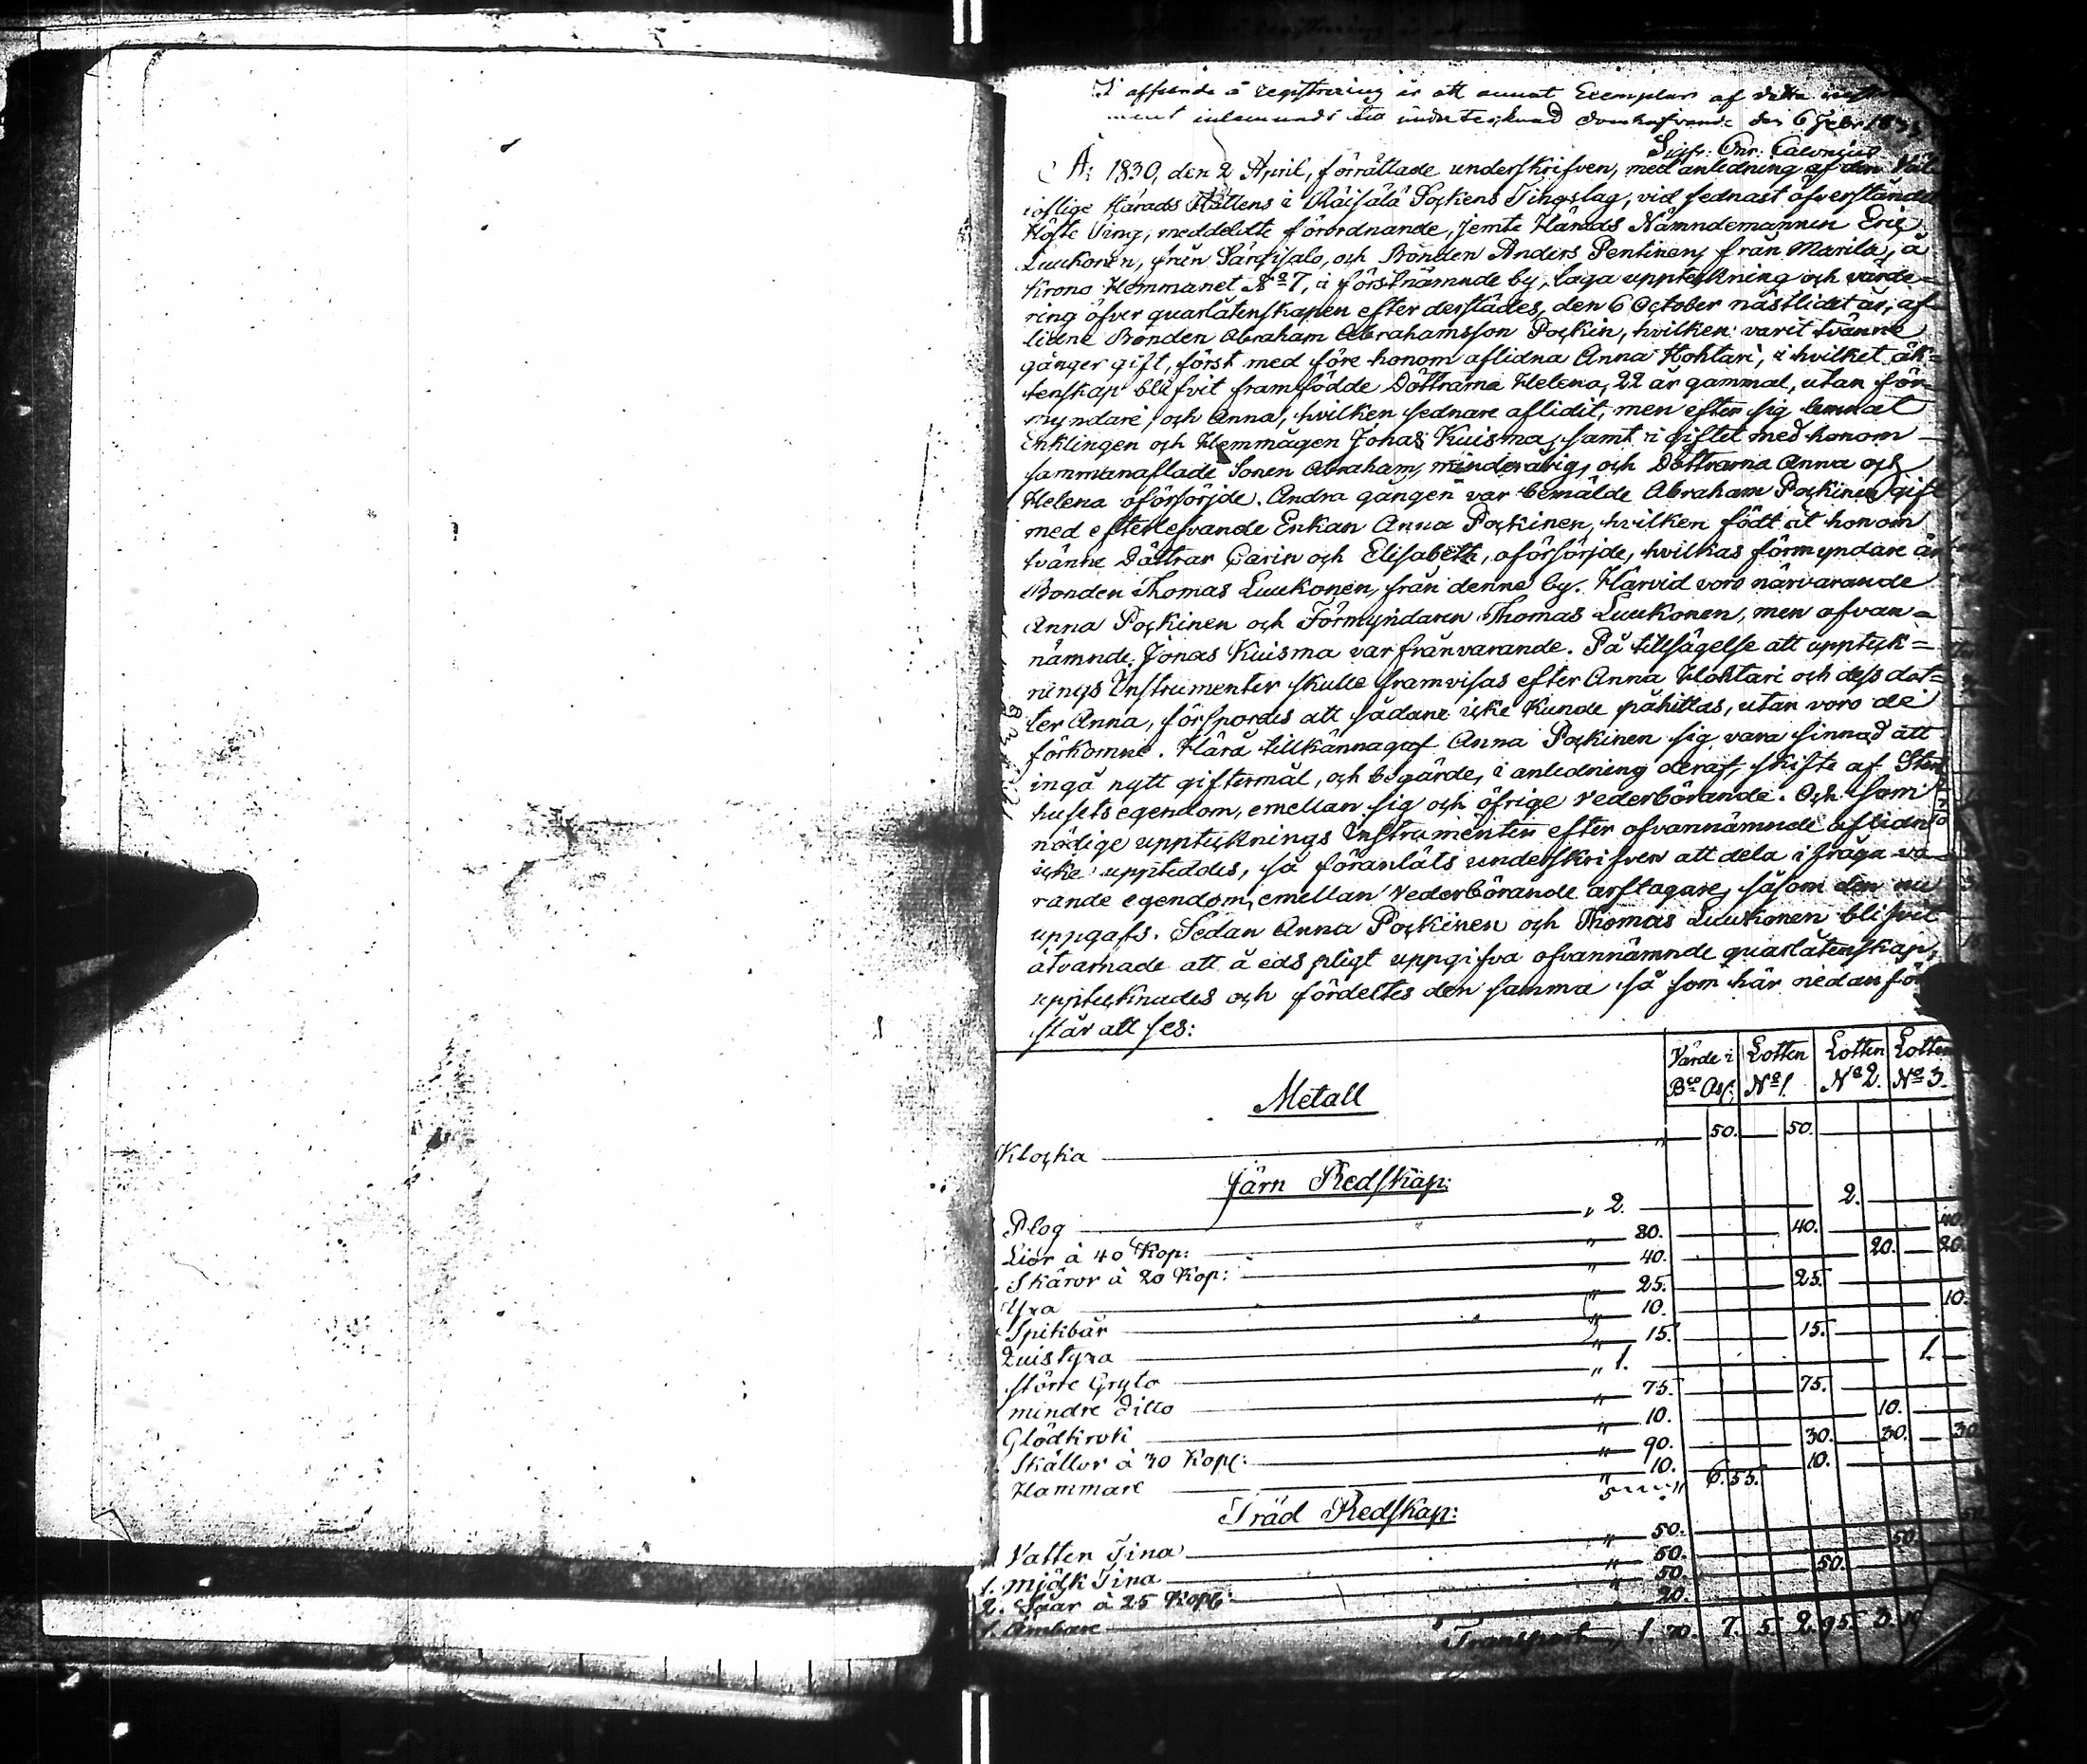 I afseende å registrering är ett annat Exemplar af detta
inlemnadt till undertecknad domhafvande den 6 Febr
Sigfr: Enr: Calonius
År 1830, den 2 April, förrättade underskrifven, med anledning af den Väl
loflige Härads Rättens i Räisälä Sockens Tingslag, vid sednast öfverståndne
Höste Ting, meddeldte förordnande, jemte Härads Nämndemannen Eric
Luukonen, från Särkisalo, och Bonden Anders Pentinen, från Marila, å
Krono Hemmanet No 7, i förstnämnde by, laga uppteckning och värde-
ring öfver quarlåtenskapen efter derstädes, den 6 October nästlidet år, af-
lidne Bonden Abraham Abrahamsson Pockin, hvilken varit tvänne
gånger gift, först med före honom aflidna Anna Hohtari, i hvilket äk=
tenskap blifvit framfödde Döttrarne Helena, 22 år gammal, utan för-
myndare, och Anna, hvilken sednare aflidit, men efter sig lemnat
Enklingen och Hemmågen Jonas Kuisma, samt i giftet med honom
sammanaflade Sonen Abraham, minderårig, och Döttrarna Anna och
Helena oförsörjde. Andra gången var bemälde Abraham Pockinen gift
med efterlefvande Enkan Anna Pockinen, hvilken födt åt honom
tvänne Döttrar Carin och Elisabeth, oförsörjde, hvilkas förmyndare är
Bonden Thomas Luukonen, från denne by. Härvid voro närvarande
Anna Pockinen och Förmyndaren Thomas Luukonen, men ofvan=
nämnde Jonas Kuisma var frånvarande. På tillsägelse att uppteck=
nings Instrumenter skulle framvisas efter Anna Hohtari och dess dot=
ter Anna, förspordes att sådane icke kunde påhittas, utan voro de
förkomne. Härå tillkännagaf Anna Pockinen sig vara sinnad att
ingå nytt giftermål, och begärde, i anledning deraf, skifte af Sterb
husets egendom, emellan sig och öfrige vederbörande. Och som
nödige upptecknings Instrumenter efter ofvannämnde aflidne
icke uppteddes, så föranläts underskrifven att dela i fråga va-
rande egendom, emellan vederbörande arftagare, såsom den nu
uppgafs. Sedan Anna Pockinen och Thomas Luukonen blifvit
åtvarnade att å eds pligt uppgifva ofvannämnde quarlåtenskap,
upptecknades och fördeltes den samma så som här nedanför
står att ses:
Värde i Bco Ass: Lotten No 1. Lotten No 2. Lotten No 3.
Metall
Klocka " 50. 50.
Järn Redskap:
Plog " 2. 2.
Liör à 40 Kop: " 80. 40. 40.
Skäror à 20 Kop: " 40. 20. 20.
Yxa " 25. 25.
Spikbår " 10. 10.
Quistyxa " 15. 15.
större Gryta " 1. 1.
mindre Ditto " 75. 75.
Glödkrok " 10. 10.
Skällor à 30 Kop: " 90. 30. 30. 30
Hammare " 10. 10.
6.55.
Träd Redskap:
Vatten Tina " 50. 50.
1. Mjölk Tina " 50. 50.
2. Såar à 25 Kop: " 50. 50.
1. Ämbare " 20.
Transport 1. 70. 7. 5. 2. 95. 3.